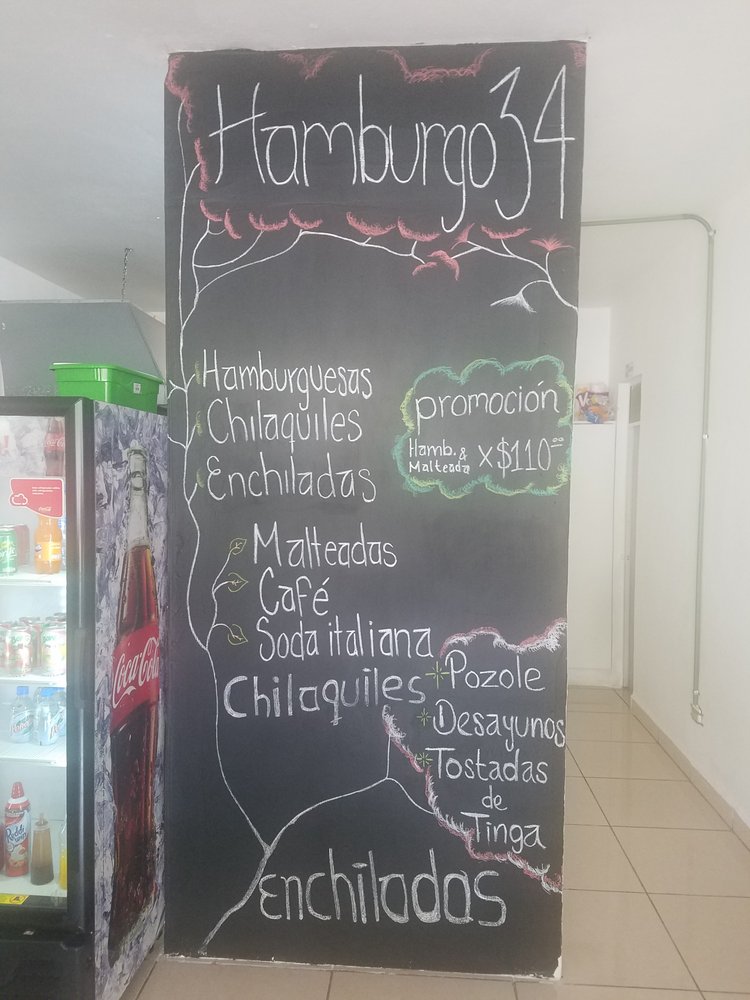 Hamburgo 34
Hamburguesas
Chilaquiles
Enchiladas
promoción
Hamb. &
Malteada x $110.00
Malteadas
Café
Soda italiana
Chilaquiles
Pozole
Desayunos
Tostadas
de
Tinga
Enchiladas
Coca-Cola